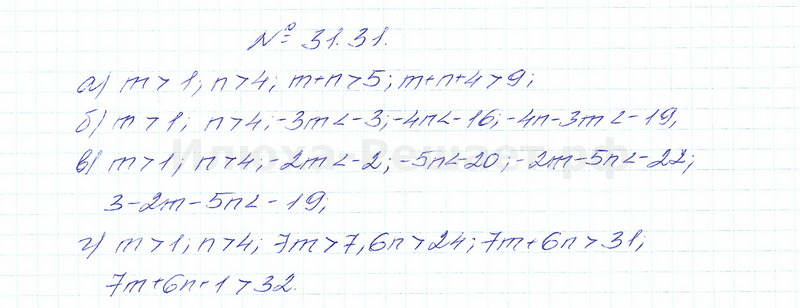 № 31.31.
а) m > 1; n > 4; m+n > 5; m+n+4 > 9;
б) m > 1; n > 4; -3m < -3; -4n < -16; -4n-3m < -19,
в) m > 1; n > 4; -2m < -2; -5n < -20; -2m-5n < -22;
3-2m-5n < -19;
г) m > 1; n > 4; 7m > 7, 6n > 24; 7m+6n > 31;
7m+6n+1 > 32.
Илюха-Решает.рф